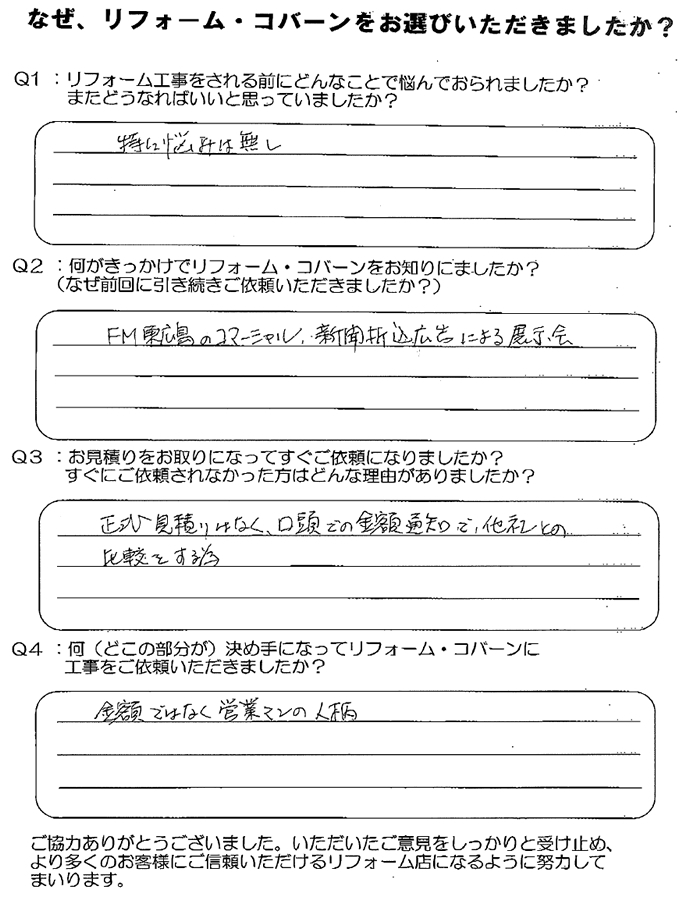 なぜ、リフォーム・コバーンをお選びいただきましたか？
Q1 ：リフォーム工事をされる前にどんなことで悩んでおられましたか？
またどうなればいいと思っていましたか？
特に悩みは無し
Q2 ：何がきっかけでリフォーム・コバーンをお知りにましたか？
（なぜ前回に引き続きご依頼いただきましたか？）
FM東広島のコマーシャル、新聞折込広告による展示会
Q3 ：お見積りをお取りになってすぐご依頼になりましたか？
すぐにご依頼されなかった方はどんな理由がありましたか？
正式見積りはなく、口頭での金額通知で、他社との
比較をする為
Q4 ：何（どこの部分が）決め手になってリフォーム・コバーンに
工事をご依頼いただきましたか？
金額ではなく営業マンの人柄
ご協力ありがとうございました。いただいたご意見をしっかりと受け止め、
より多くのお客様にご信頼いただけるリフォーム店になるように努力して
まいります。